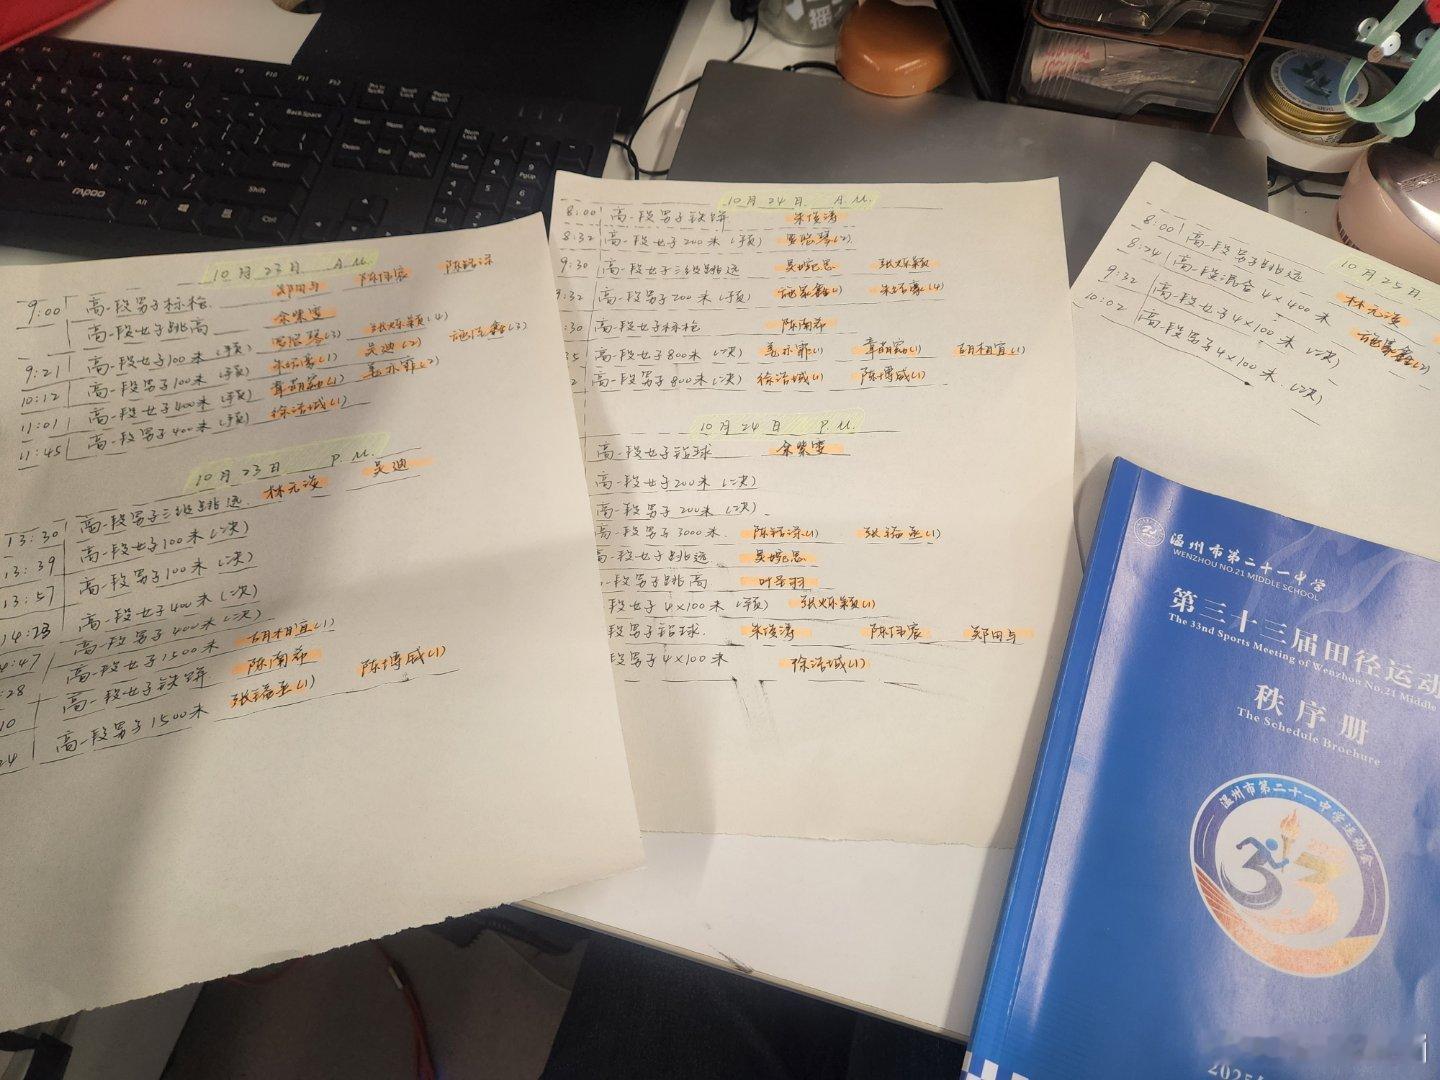 10月23日 A.M.
9:00 高一段男子标枪 郑田与
高一段女子跳高 余紫雯
9:21 高一段女子100米(预) (3) 张烁颖(4)
10:12 高一段男子100米(预) (1) 吴迪(2) (3)
11:01 高一段女子400米(预) 章萌勐(1) 孟亦霏(2)
11:45 高一段男子400米(预) 徐浩城(1)
10月23日 P.M.
13:30 高一段男子三级跳远 林元浚 吴迪
13:39 高一段女子100米(决)
13:57 高一段男子100米(决)
14:23 高一段女子400米(决)
4:47 高一段男子400米(决)
:28 高一段女子1500米 胡相宜(1)
10 高一段女子铁饼 陈南希
24 高一段男子1500米 (1) 陈博威(1)
10月24日 A.M.
8:00 高一段男子铁饼 朱俊涛
8:32 高一段女子200米(预) (2)
9:30 高一段女子三级跳远 吴婉思 张烁颖
9:32 高一段男子200米(预) (4)
:30 高一段女子标枪 陈南希
5 高一段女子800米(决) 孟亦霏(1) 章萌勐(1) 胡相宜(1)
2 高一段男子800米(决) 徐浩城(1) 陈博威(1)
10月24日 P.M.
高一段女子铅球 余紫雯
高一段女子200米(决)
高一段男子200米(决)
高一段男子3000米 (1) (1)
高一段女子跳远 吴婉思
一段男子跳高
段女子4×100米(预) 张烁颖(1)
段男子铅球 朱俊涛 郑田与
段男子4×100米 徐浩城(1)
10月25日
8:00 高一段男子跳远 林元浚
8:24 高一段混合4×400米 (2)
9:32 高一段女子4×100米(决)
10:02 高一段男子4×100米(决)
温州市第二十一中学
WENZHOU NO.21 MIDDLE SCHOOL
第三十三届田径运动
The 33nd Sports Meeting of Wenzhou No.21 Middle
秩序册
The Schedule Brochure
温州市第二十一中学运动会
33
2025
rapoo
Back Space
Enter
Shift
Alt
Ctrl